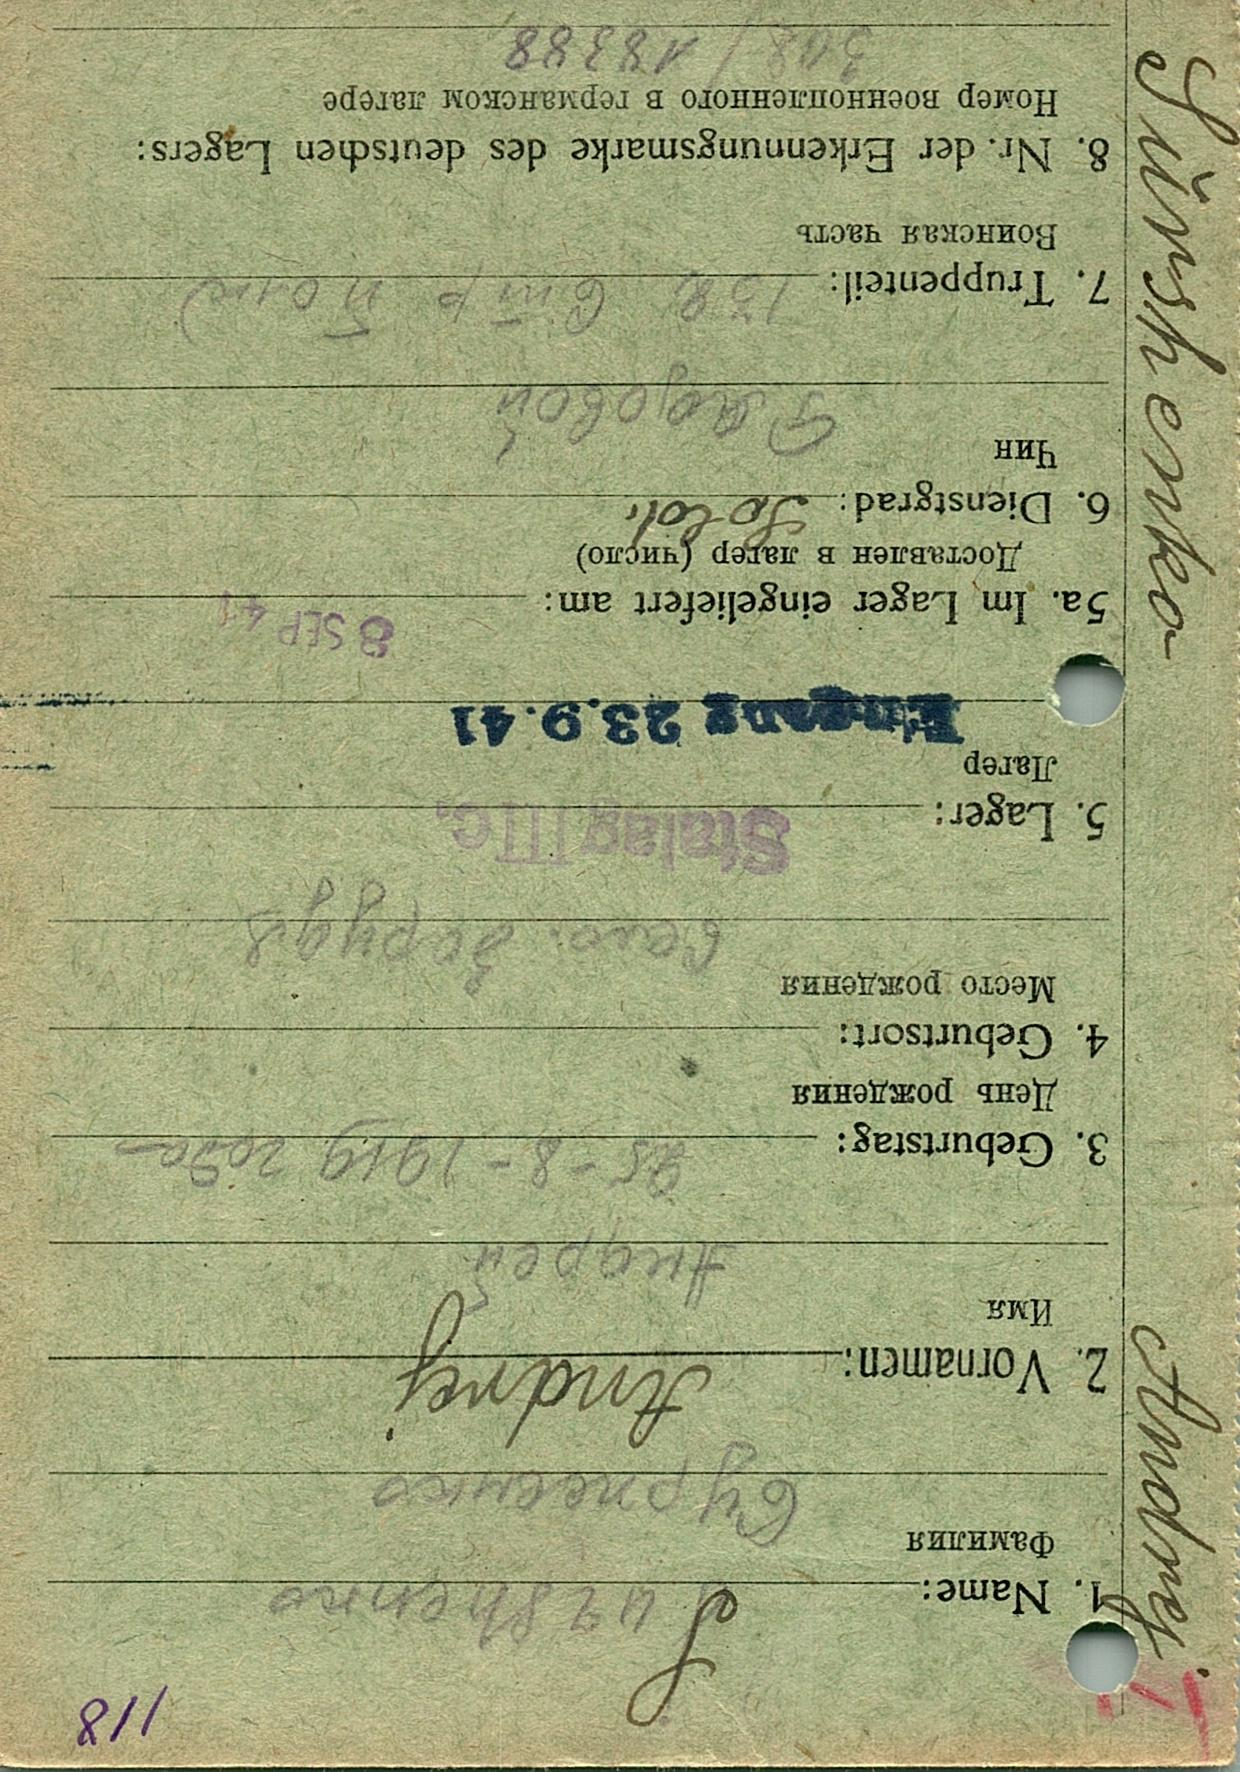 118
1. Name: Surshenko
Фамилия
Сурженко
2. Vornamen: Andrej
Имя
Андрей
3. Geburtstag: 25-8-1919 года
День рождения
4. Geburtsort:
Место рождения
Село.
5. Lager: Stalag III c.
Лагер
Eingang 23.9.41
8 SEP 41
5a. Im Lager eingeliefert am:
Доставлен в лагер (число)
6. Dienstgrad: Sold.
Чин
Рядовой
7. Truppenteil: 132
Воинская часть
8. Nr. der Erkennungsmarke des deutschen Lagers:
Номер военнопленного в германском лагере
/ 18388
Andrej
Sŭrshenko